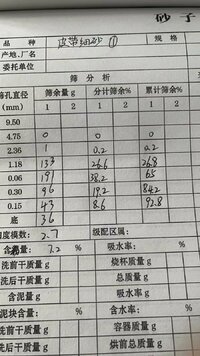 砂 子
品 种 皮带细砂① 规 格
产地.厂名
委托单位
筛 分 析
筛孔直径 筛余量 g 分计筛余% 累计筛余%
(mm) 1 2 1 2 1 2
9.50
4.75 0 0 0
2.36 1 0.2 0.2
1.18 133 26.6 26.8
0.06 191 38.2 65
0.30 96 19.2 84.2
0.15 43 8.6 92.8
底 36
度模数: 2.7 级配区属:
含泥量: 7.2 % 吸水率: %
洗前干质量 g 烧杯质量 g
洗后干质量 g 总质量 g
含泥量 % 吸水率 g
泥块含量: % 含水率: %
洗前干质量 g 容器质量 g
洗后干质量 g 烘前总质量 g